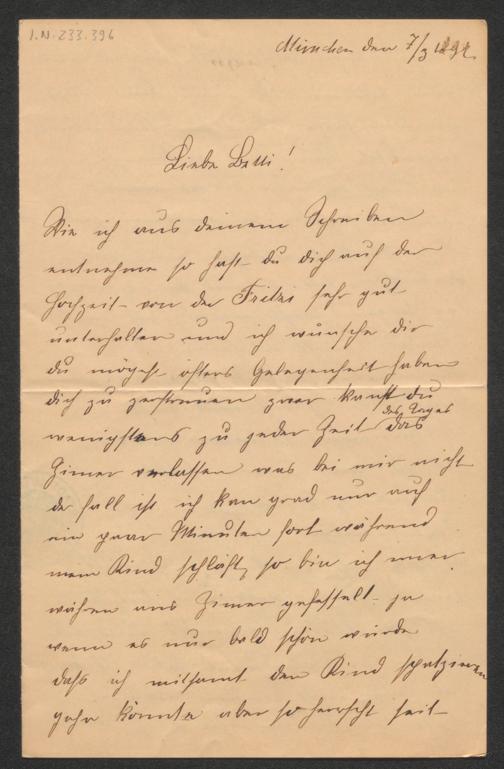 I.N. 233.396
München den 7/3 1892
Liebe Betti!
Wie ich aus deinem Schreiben
entnehme so hast du dich auf der
Hochzeit von der Fritzi sehr gut
unterhalten und ich wünsche dir
du mögest öfters Gelegenheit haben
dich zu zerstreuen zwar kanst du
wenigstens zu jeder Zeit des Tages das
Zimer verlassen was bei mir nicht
der fall ist ich kan grad nur auf
ein paar Minuten fort während
mein Kind schläft, so bin ich
währen ans Zimer gefesselt ja
wenn es nur bald schön würde
dass ich mitsamt den Kind spatziren
gehn könnte aber so herrscht seit